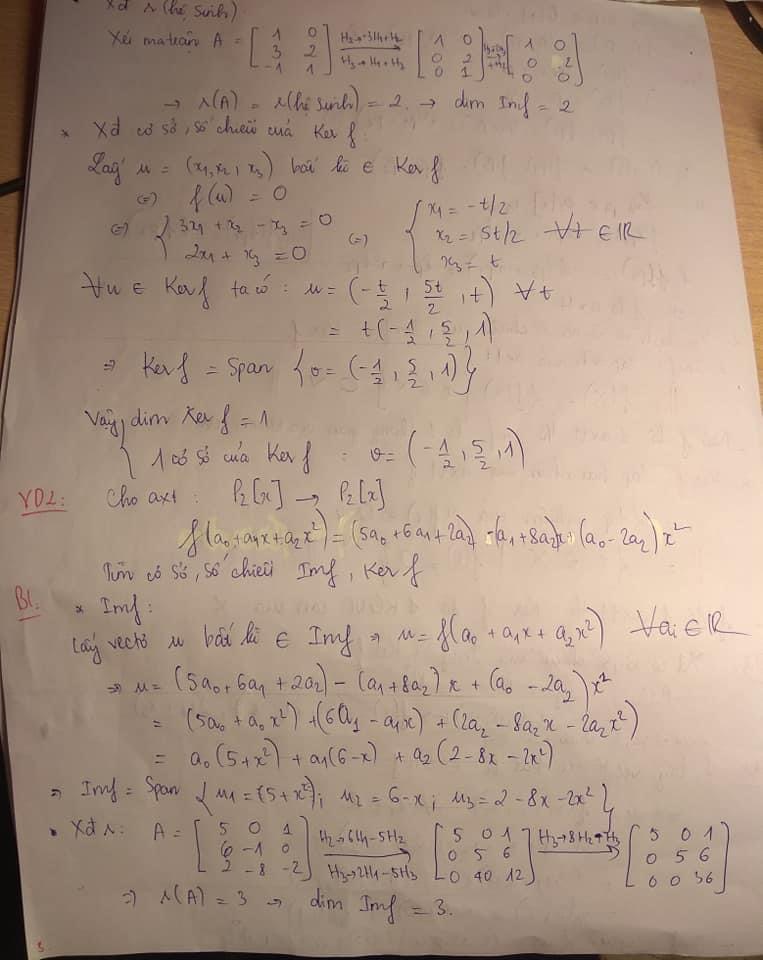 * Xđ r(hệ sinh)
Xét ma trận A = [1 0; 3 2; -1 1] H2→-3H1+H2 H3→H1+H3 [1 0; 0 2; 0 1] → [1 0; 0 2; 0 0]
→ r(A) = r(hệ sinh) = 2. → dim Imf = 2
* Xđ cơ sở, số chiều của Ker f.
Lấy u = (x1, x2, x3) bất kì ∈ Ker f
(=) f(u) = 0
(=) { 3x1 + x2 - x3 = 0; 2x1 + x3 = 0 (=) { x1 = -t/2; x2 = 5t/2; x3 = t ∀t ∈ IR
∀u ∈ Ker f ta có : u = (-t/2, 5t/2, t) ∀t
= t(-1/2, 5/2, 1)
⇒ Ker f = Span {v = (-1/2, 5/2, 1)}
Vậy { dim Ker f = 1
1 cơ sở của Ker f : v = (-1/2, 5/2, 1)
VD2: Cho axt : P2[x] → P2[x]
f(a0 + a1x + a2x²) = (5a0 + 6a1 + 2a2) - (a1 + 8a2)x + (a0 - 2a2)x²
Tìm cơ sở, số chiều Imf, Ker f
B1. * Imf:
Lấy vectơ u bất kì ∈ Imf ⇒ u = f(a0 + a1x + a2x²) ∀ai ∈ IR
⇒ u = (5a0 + 6a1 + 2a2) - (a1 + 8a2)x + (a0 - 2a2)x²
= (5a0 + a0x²) + (6a1 - a1x) + (2a2 - 8a2x - 2a2x²)
= a0(5 + x²) + a1(6 - x) + a2(2 - 8x - 2x²)
⇒ Imf = Span {u1 = (5 + x²); u2 = 6 - x; u3 = 2 - 8x - 2x²}
• Xđ r: A = [5 0 1; 6 -1 0; 2 -8 -2] H2→6H1-5H2 H3→2H1-5H3 [5 0 1; 0 5 6; 0 40 12] H3→8H2-H3 [5 0 1; 0 5 6; 0 0 36]
⇒ r(A) = 3 → dim Imf = 3.